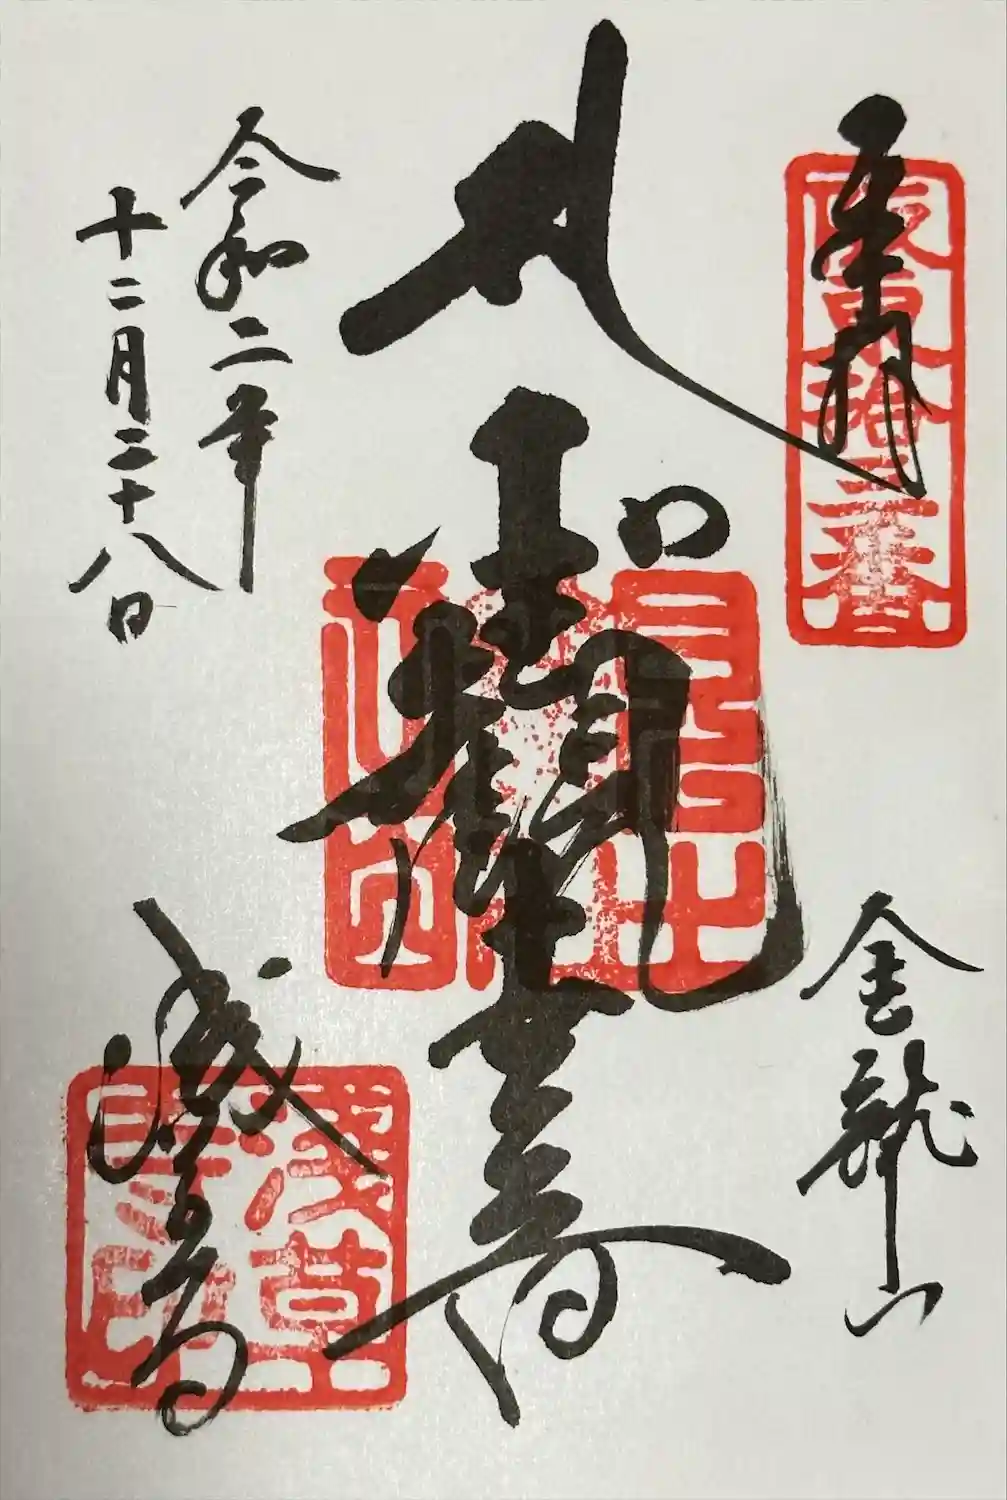 奉拝
坂東拾三番
金龍山
聖観世音
令和二年
十二月二十八日
浅草寺
淺草寺印